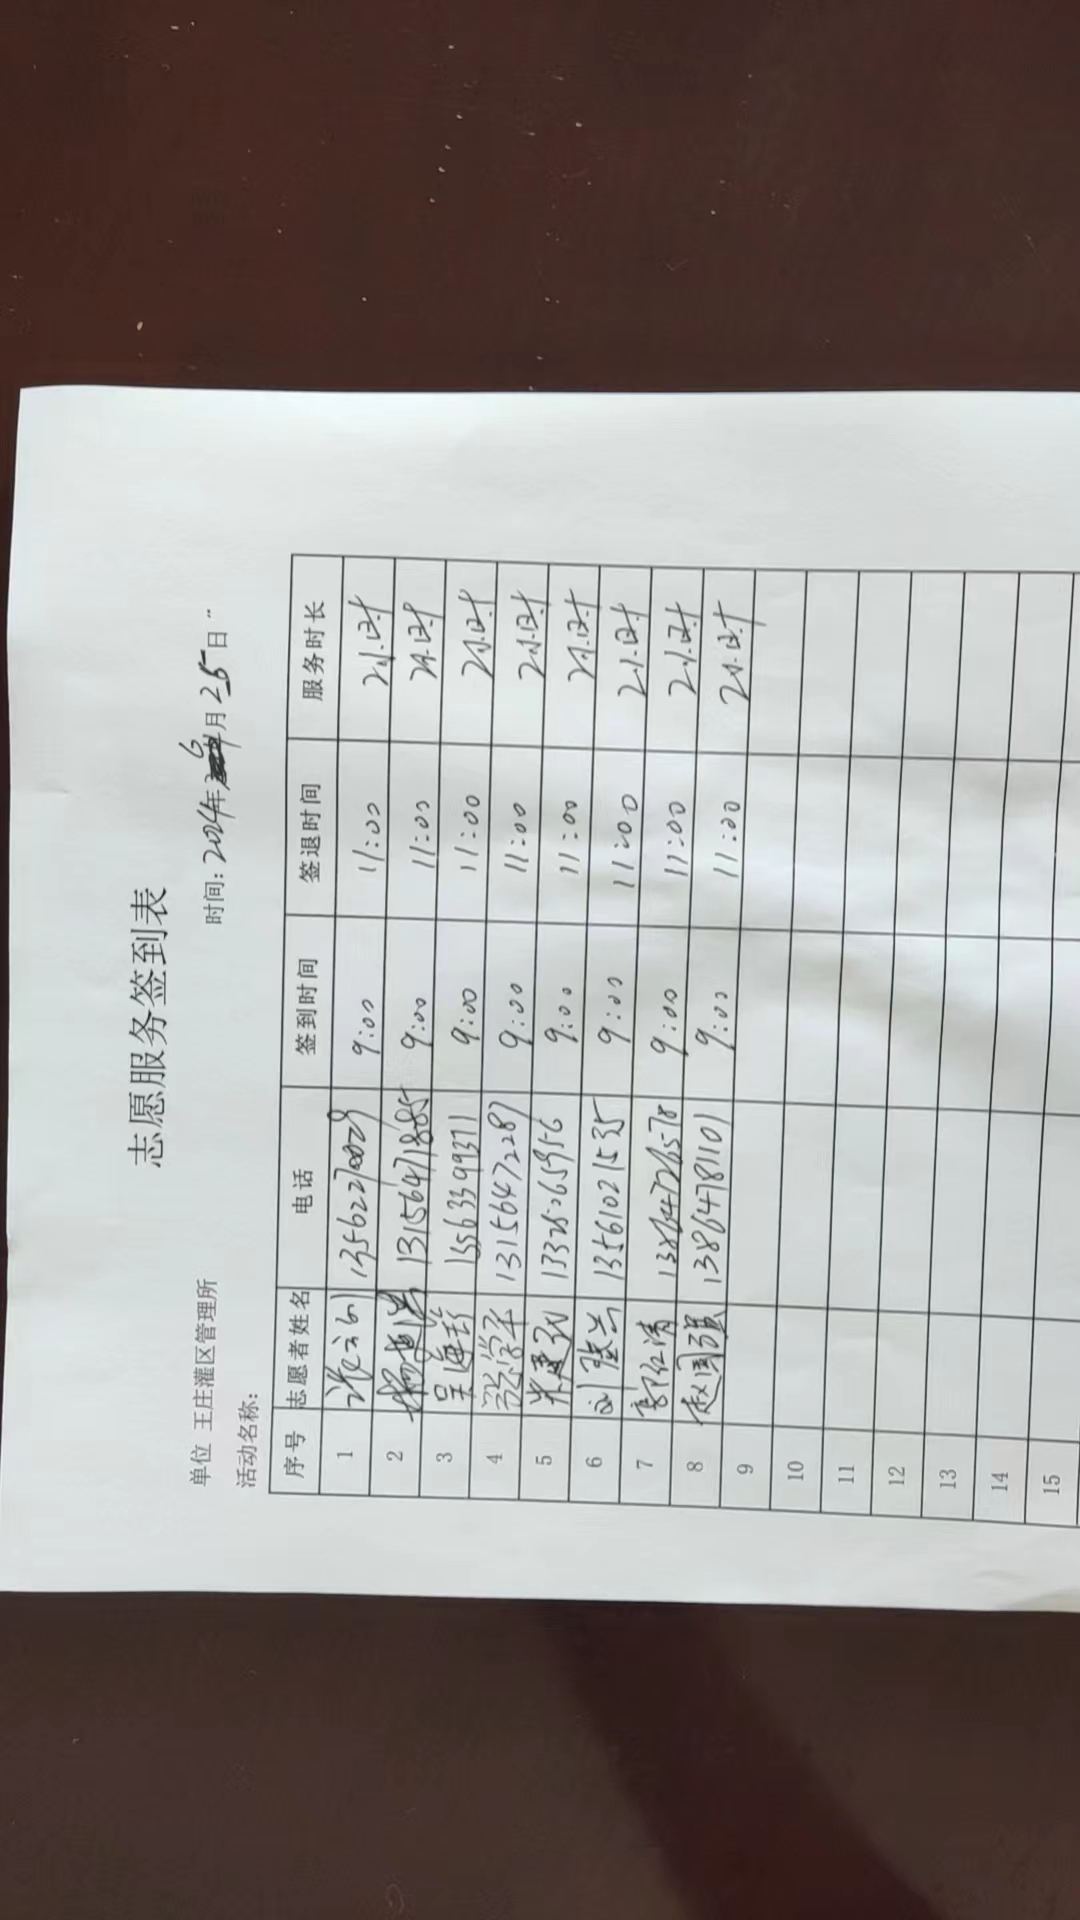 志愿服务签到表
单位 王庄灌区管理所 时间：2024年6月25日
活动名称：
序号 志愿者姓名 电话 签到时间 签退时间 服务时长
1 13562270029 9:00 11:00 2小时
2 13156471885 9:00 11:00 2小时
3 吴海珍 15563399371 9:00 11:00 2小时
4 张学平 13156472287 9:00 11:00 2小时
5 13325065956 9:00 11:00 2小时
6 13561021535 9:00 11:00 2小时
7 13864726578 9:00 11:00 2小时
8 赵国强 13864781101 9:00 11:00 2小时
9
10
11
12
13
14
15